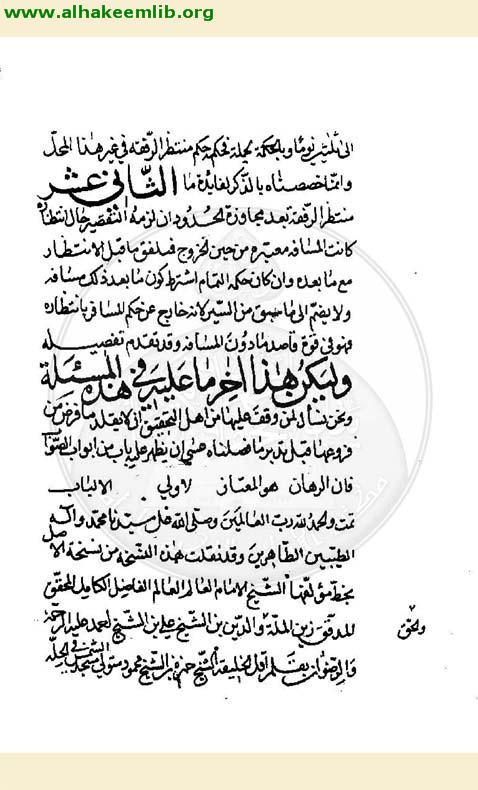 www.alhakeemlib.org
الى ثلثين يومًا وبالجملة فحكمه حكم منتظر الرفقة في غير هذا المحل
وانما خصصناه بالذكر لفايدة ما الثاني عشر
منتظر الرفقة بعد مجاوزة الحدود ان لزمه التقصير حال انتظاره
كانت المسافة معتبرة من حين الخروج فيلفق ما قبل الانتظار
مع ما بعده وان كان حكمه التمام اشترط كون ما بعد ذلك مسافة
ولا يضم الى ما سبق من السير لانه خارج عن حكم المسافر بانتظاره
فهو في قوة قاصد ما دون المسافة وقد تقدم تفصيله
وليكن هذا آخر ما عليه في هذه المسئلة
ونحن نسأل لمن وقف عليها من اهل التحقيق ان لا يقلد ما فرض من
فروعها قبل تدبر ما فصلناه عسى ان يظهر عليه باب من ابواب الصواب
فان الرهان هو المعتاز لاولي الالباب
تمت والحمد لله رب العالمين وصلى الله على سيدنا محمد وآله
الطيبين الطاهرين وقد نقلت هذه النسخة من نسخة الاصل
بخط مؤلفها الشيخ الامام العالم العالم الفاضل الكامل المحقق
المدقق زين الملة والدين بن الشيخ علي بن الشيخ احمد عليه الرحمة
والرضوان بقلم اقل الخليقة الشيخ حمزة بن الشيخ محمود